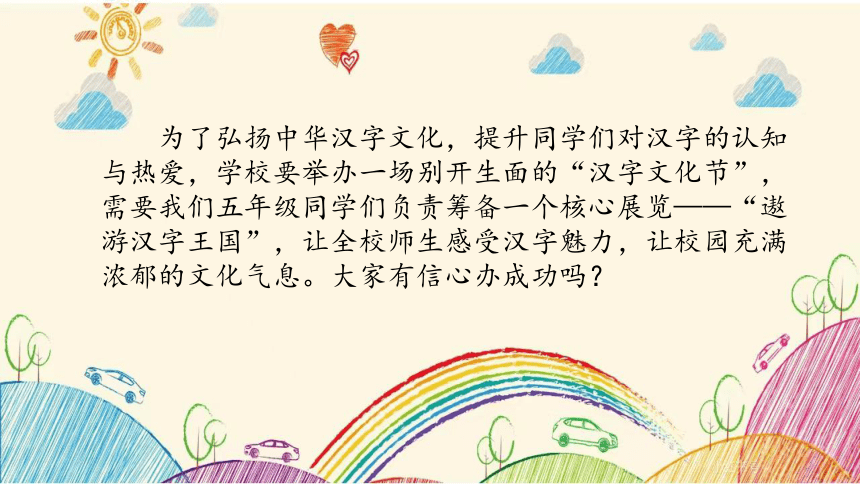 为了弘扬中华汉字文化，提升同学们对汉字的认知
与热爱，学校要举办一场别开生面的“汉字文化节”，
需要我们五年级同学们负责筹备一个核心展览——“遨
游汉字王国”，让全校师生感受汉字魅力，让校园充满
浓郁的文化气息。大家有信心办成功吗？